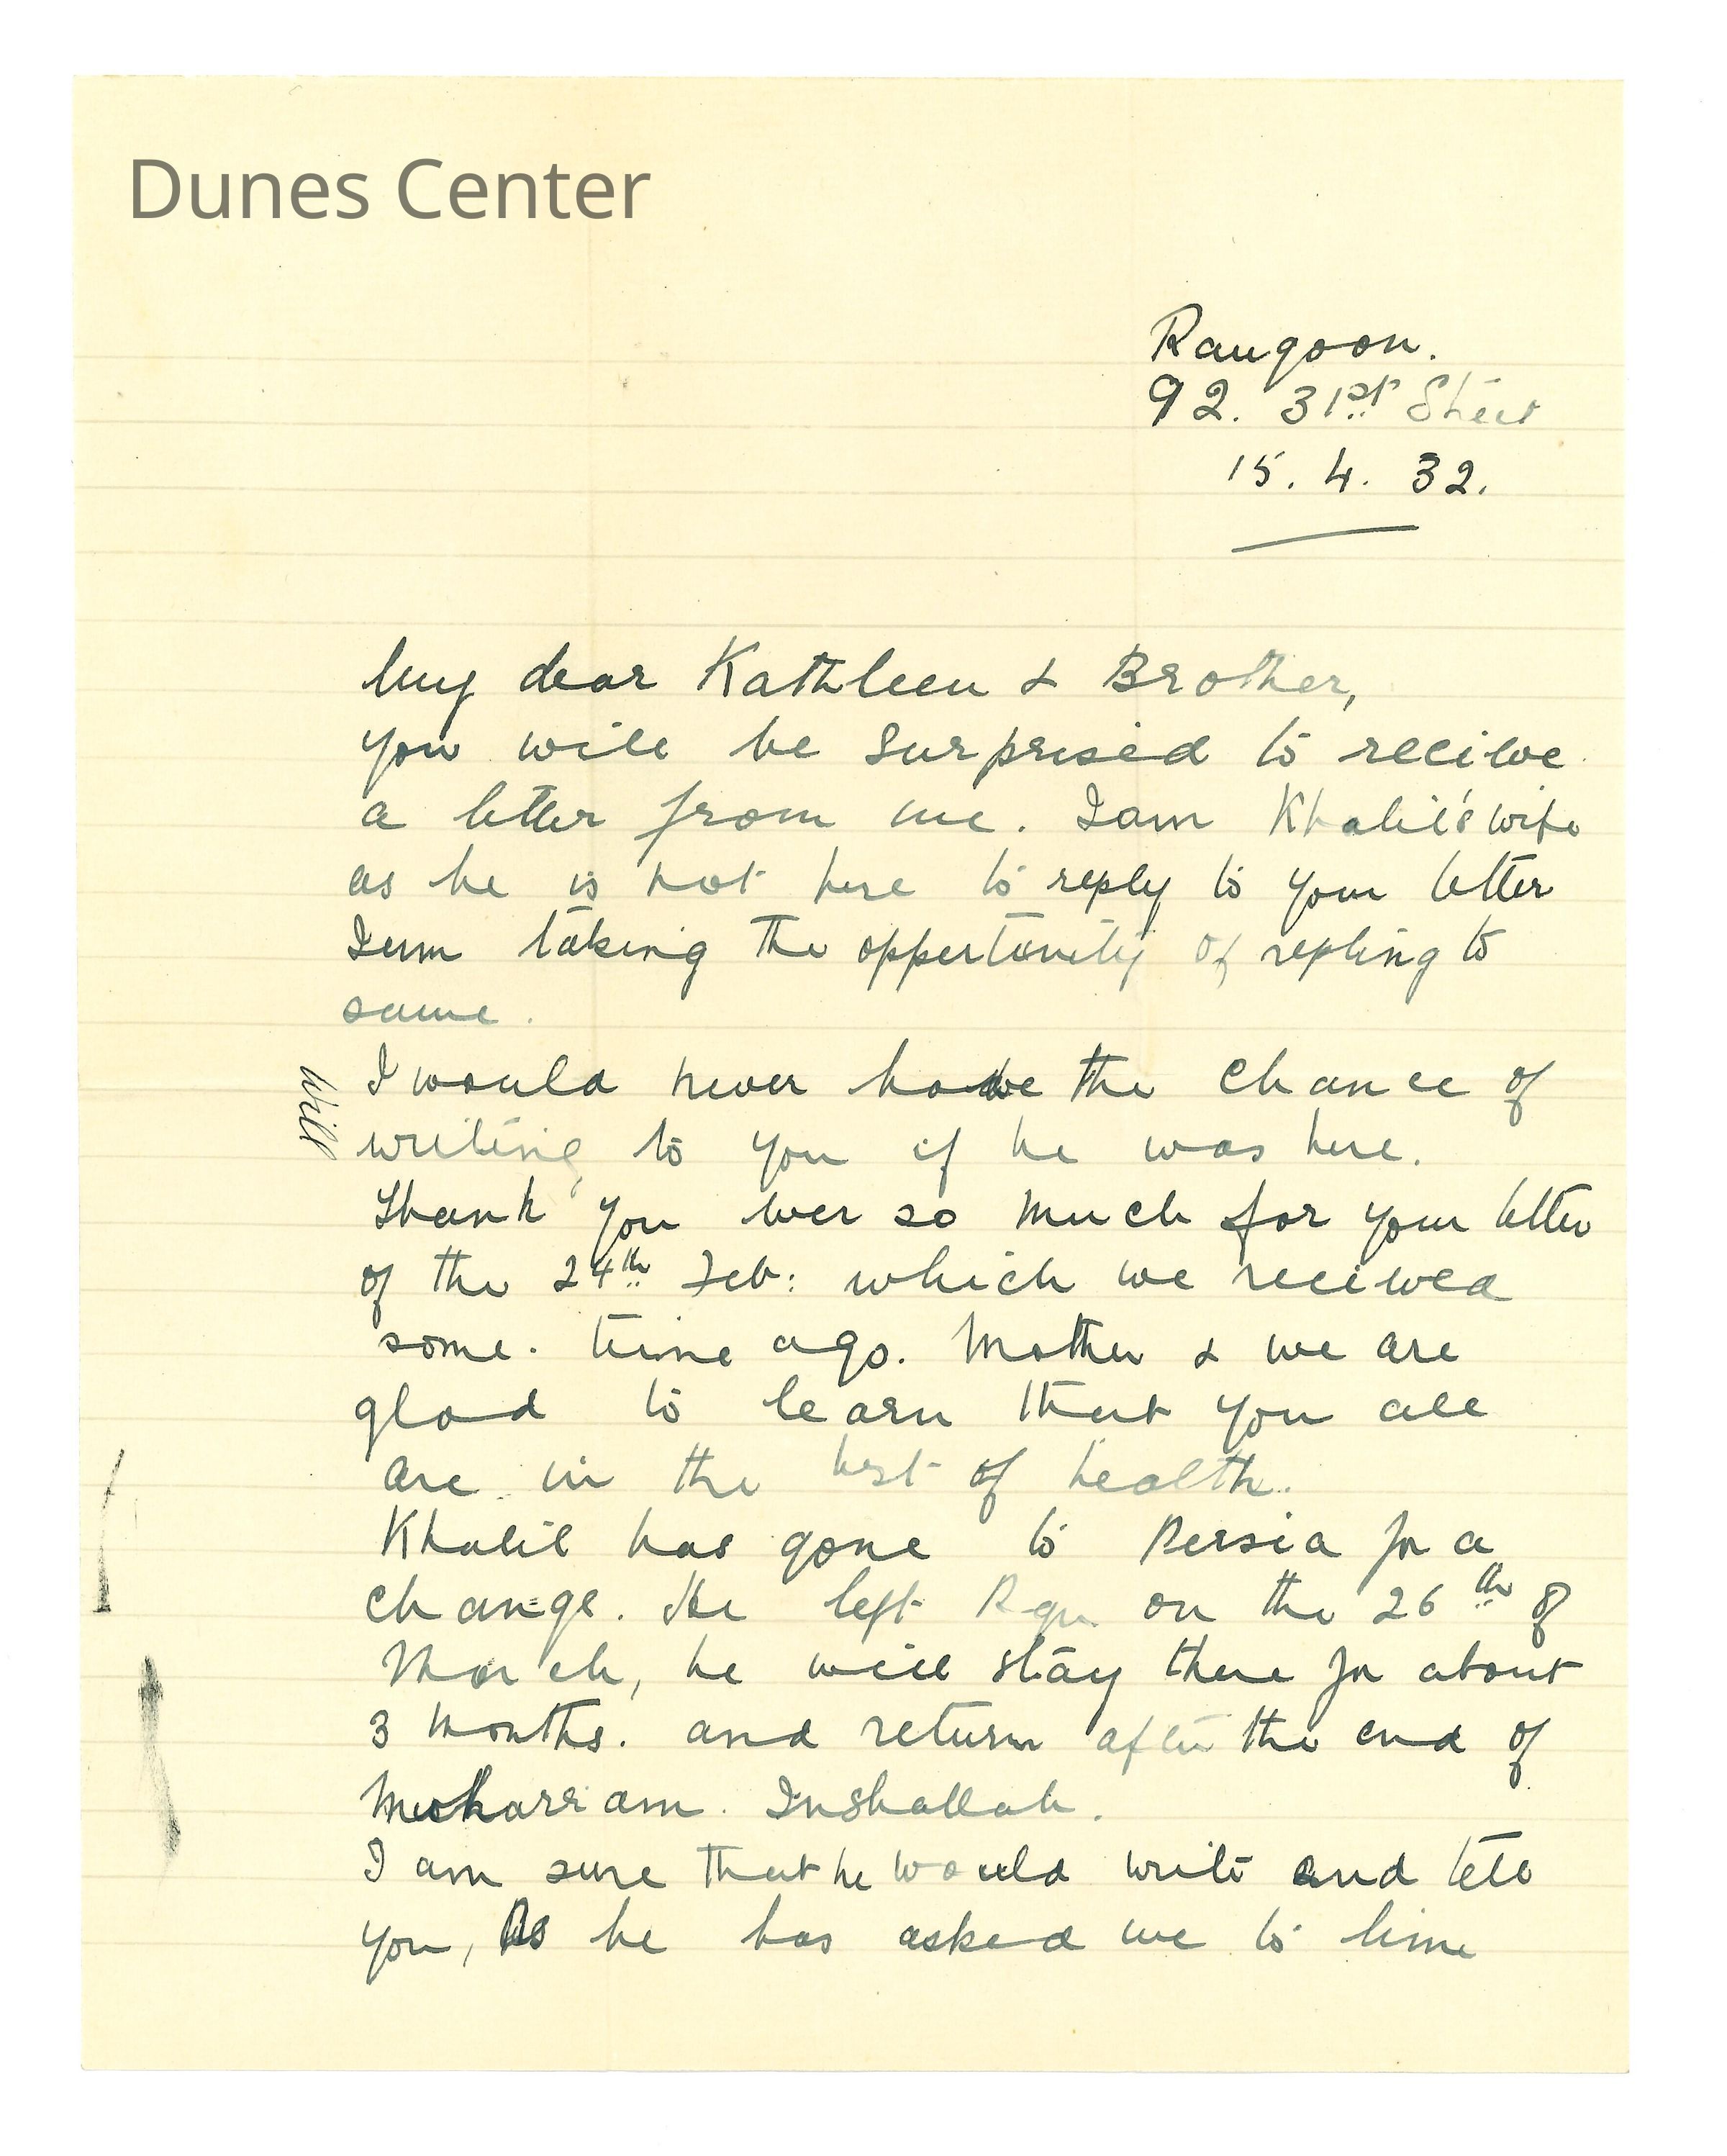 Dunes Center
Rangoon.
92. 31st Street
15. 4. 32.
My dear Kathleen & Brother,
you will be surprised to recieve
a letter from me. I am Khalil's wife
as he is not here to reply to your letter
I am taking the oppertunity of repling to
same.
I would never have the chance of
Will
writing to you if he was here.
Thank you ever so much for your letter
of the 24th Feb: which we recieved
some. time ago. Mother & we are
glad to learn that you all
are in the best of health.
Khalil has gone to Persia for a
change. He left Rgn. on the 26th of
March, he will stay there for about
3 months. and return after the end of
Moharram. Inshallah.
I am sure that he would write and tell
you, As he has asked me to